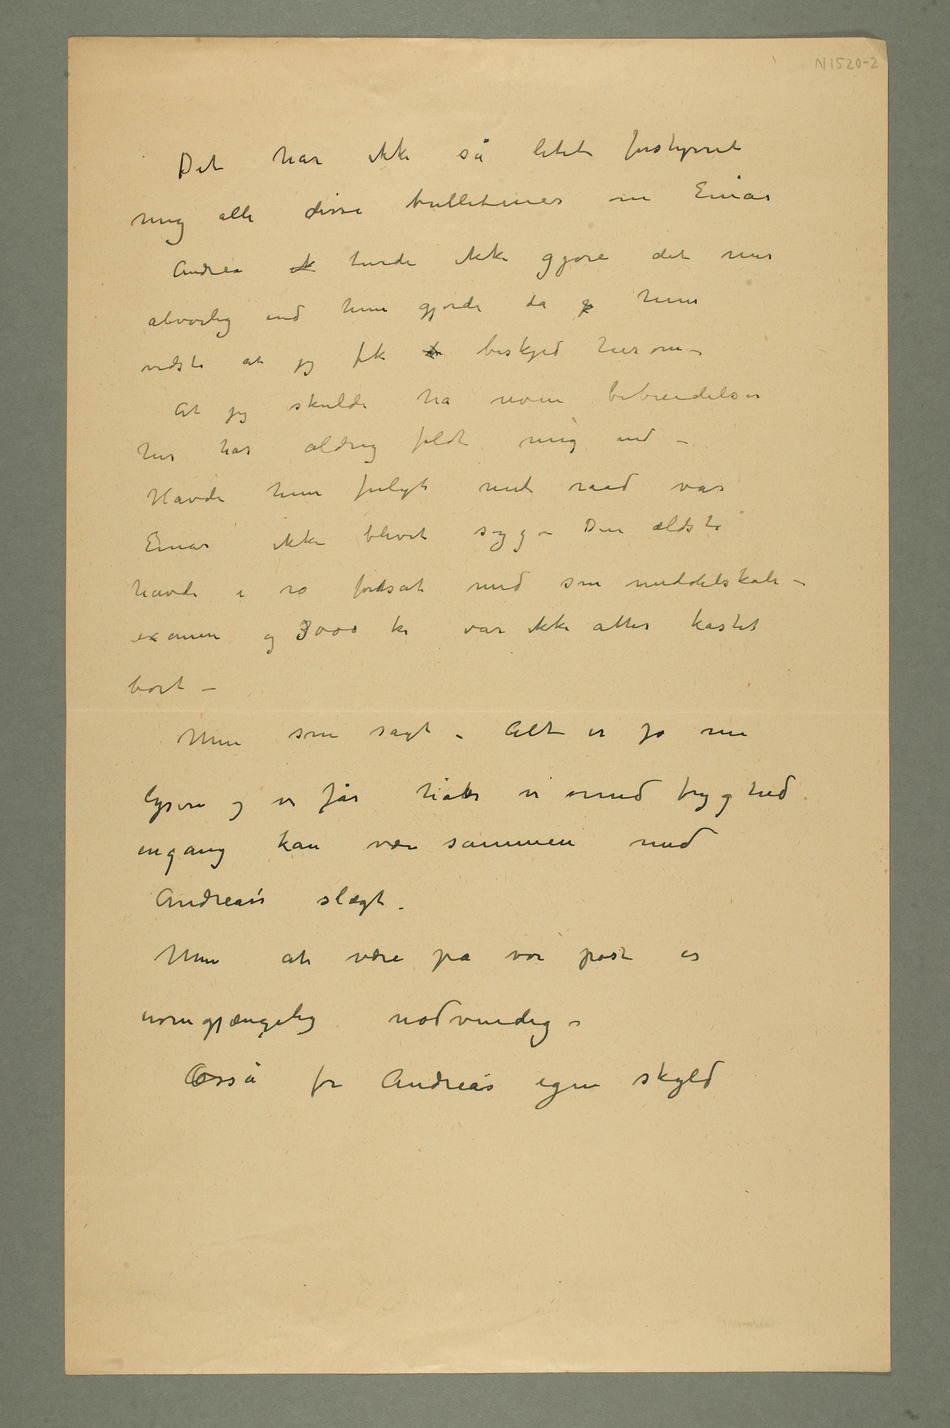 N 1520-2
Det har ikke så litet forstyrret
mig alle disse bulletiner om Einar
Andrea turde ikke gjøre det mer
alvorlig end hun gjorde da hun
vidste at jeg fik beskjed herom –
At jeg skulde ha noen bebreidelser
her har aldrig faldt mig ind –
Havde hun fulgt mit raad var
Einar ikke blivet syg – Den ældste
havde i ro fortsat med sin middelskole –
examen og 3000 kr var ikke atter kastet
bort –
Men som sagt – Alt er jo nu
lysere og vi får håbe vi med tryghed
engang kan være sammen med
Andreas slægt.
Men at være på vor post er
uomgjængelig nødvendig –
Osså for Andreas egen skyld